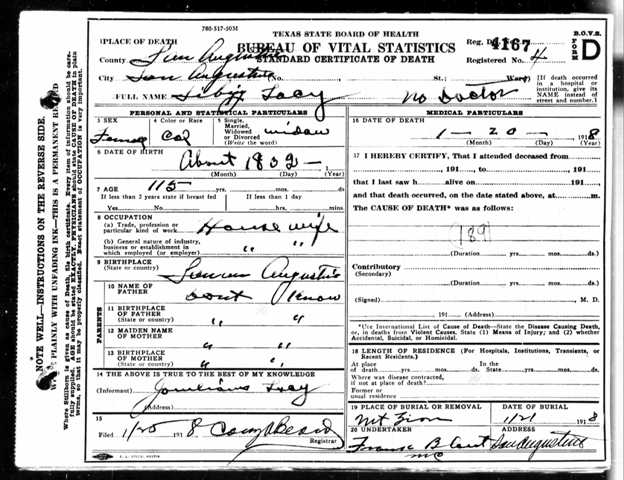 780-517-5051
TEXAS STATE BOARD OF HEALTH
BUREAU OF VITAL STATISTICS
STANDARD CERTIFICATE OF DEATH
B.O.V.S.
FORM D
1 PLACE OF DEATH
County San Augustine
City San Augustine (No. St.; Ward)
Reg. Dis. 4167
Registered No. 4
[If death occurred in a hospital or institution, give its NAME instead of street and number.]
FULL NAME Lacy No Doctor
PERSONAL AND STATISTICAL PARTICULARS
3 SEX
4 Color or Race
5 Single, Married, Widowed or Divorced (Write the word)
Col widow
6 DATE OF BIRTH
About 1802
(Month) (Day) (Year)
7 AGE
115 yrs. mos. ds.
If less than 2 years state if breast fed
If less than 1 day
Yes No hrs. mins.
8 OCCUPATION
(a) Trade, profession or particular kind of work House wife
(b) General nature of industry, business or establishment in which employed (or employer) " "
9 BIRTHPLACE
(State or country) Augustine
10 NAME OF FATHER dont Know
11 BIRTHPLACE OF FATHER
(State or country) " "
12 MAIDEN NAME OF MOTHER " "
13 BIRTHPLACE OF MOTHER
(State or country) " "
PARENTS
14 THE ABOVE IS TRUE TO THE BEST OF MY KNOWLEDGE
(Informant) Lacy
(Address)
15
Filed 1/20 1918
Registrar
MEDICAL PARTICULARS
16 DATE OF DEATH
1 - 20 - 1918
(Month) (Day) (Year)
17 I HEREBY CERTIFY, That I attended deceased from
191 , to 191 ,
that I last saw h alive on 191 ,
and that death occurred, on the date stated above, at m.
The CAUSE OF DEATH* was as follows:
189
(Duration yrs. mos. ds.)
Contributory
(Secondary)
(Duration yrs. mos. ds.)
(Signed) M. D.
191 (Address)
*Use International List of Cause of Death—State the Disease Causing Death, or, in deaths from Violent Causes, State (1) Means of Injury; and (2) whether Accidental, Suicidal, or Homicidal.
18 LENGTH OF RESIDENCE (For Hospitals, Institutions, Transients, or Recent Residents.)
At place of death yrs. mos. ds.
In the State yrs. mos. ds.
Where was disease contracted, if not at place of death?
Former or usual residence
19 PLACE OF BURIAL OR REMOVAL
DATE OF BURIAL
Mt Zion 1/21 1918
20 UNDERTAKER
San Augustine
NOTE WELL—INSTRUCTIONS ON THE REVERSE SIDE.
PLAINLY WITH UNFADING INK—THIS IS A PERMANENT RECORD